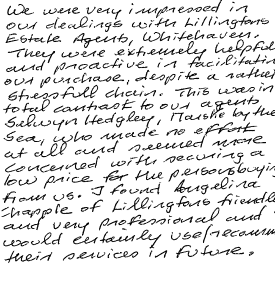 We were very impressed in
our dealings with Lillingtons
Estate Agents, Whitehaven.
They were extremely helpful
and proactive in facilitatin
our purchase, despite a rathe
stressfull chain. This was in
total contrast to our agents
Selwyn Hedgley, Marske by the
Sea, who made no effort
at all and seemed more
concerned with securing a
low price for the persons buyin
from us. I found Angelina
Chapple of Lillingtons friendl
and very professional and
would certainly use/recomm
their services in future.